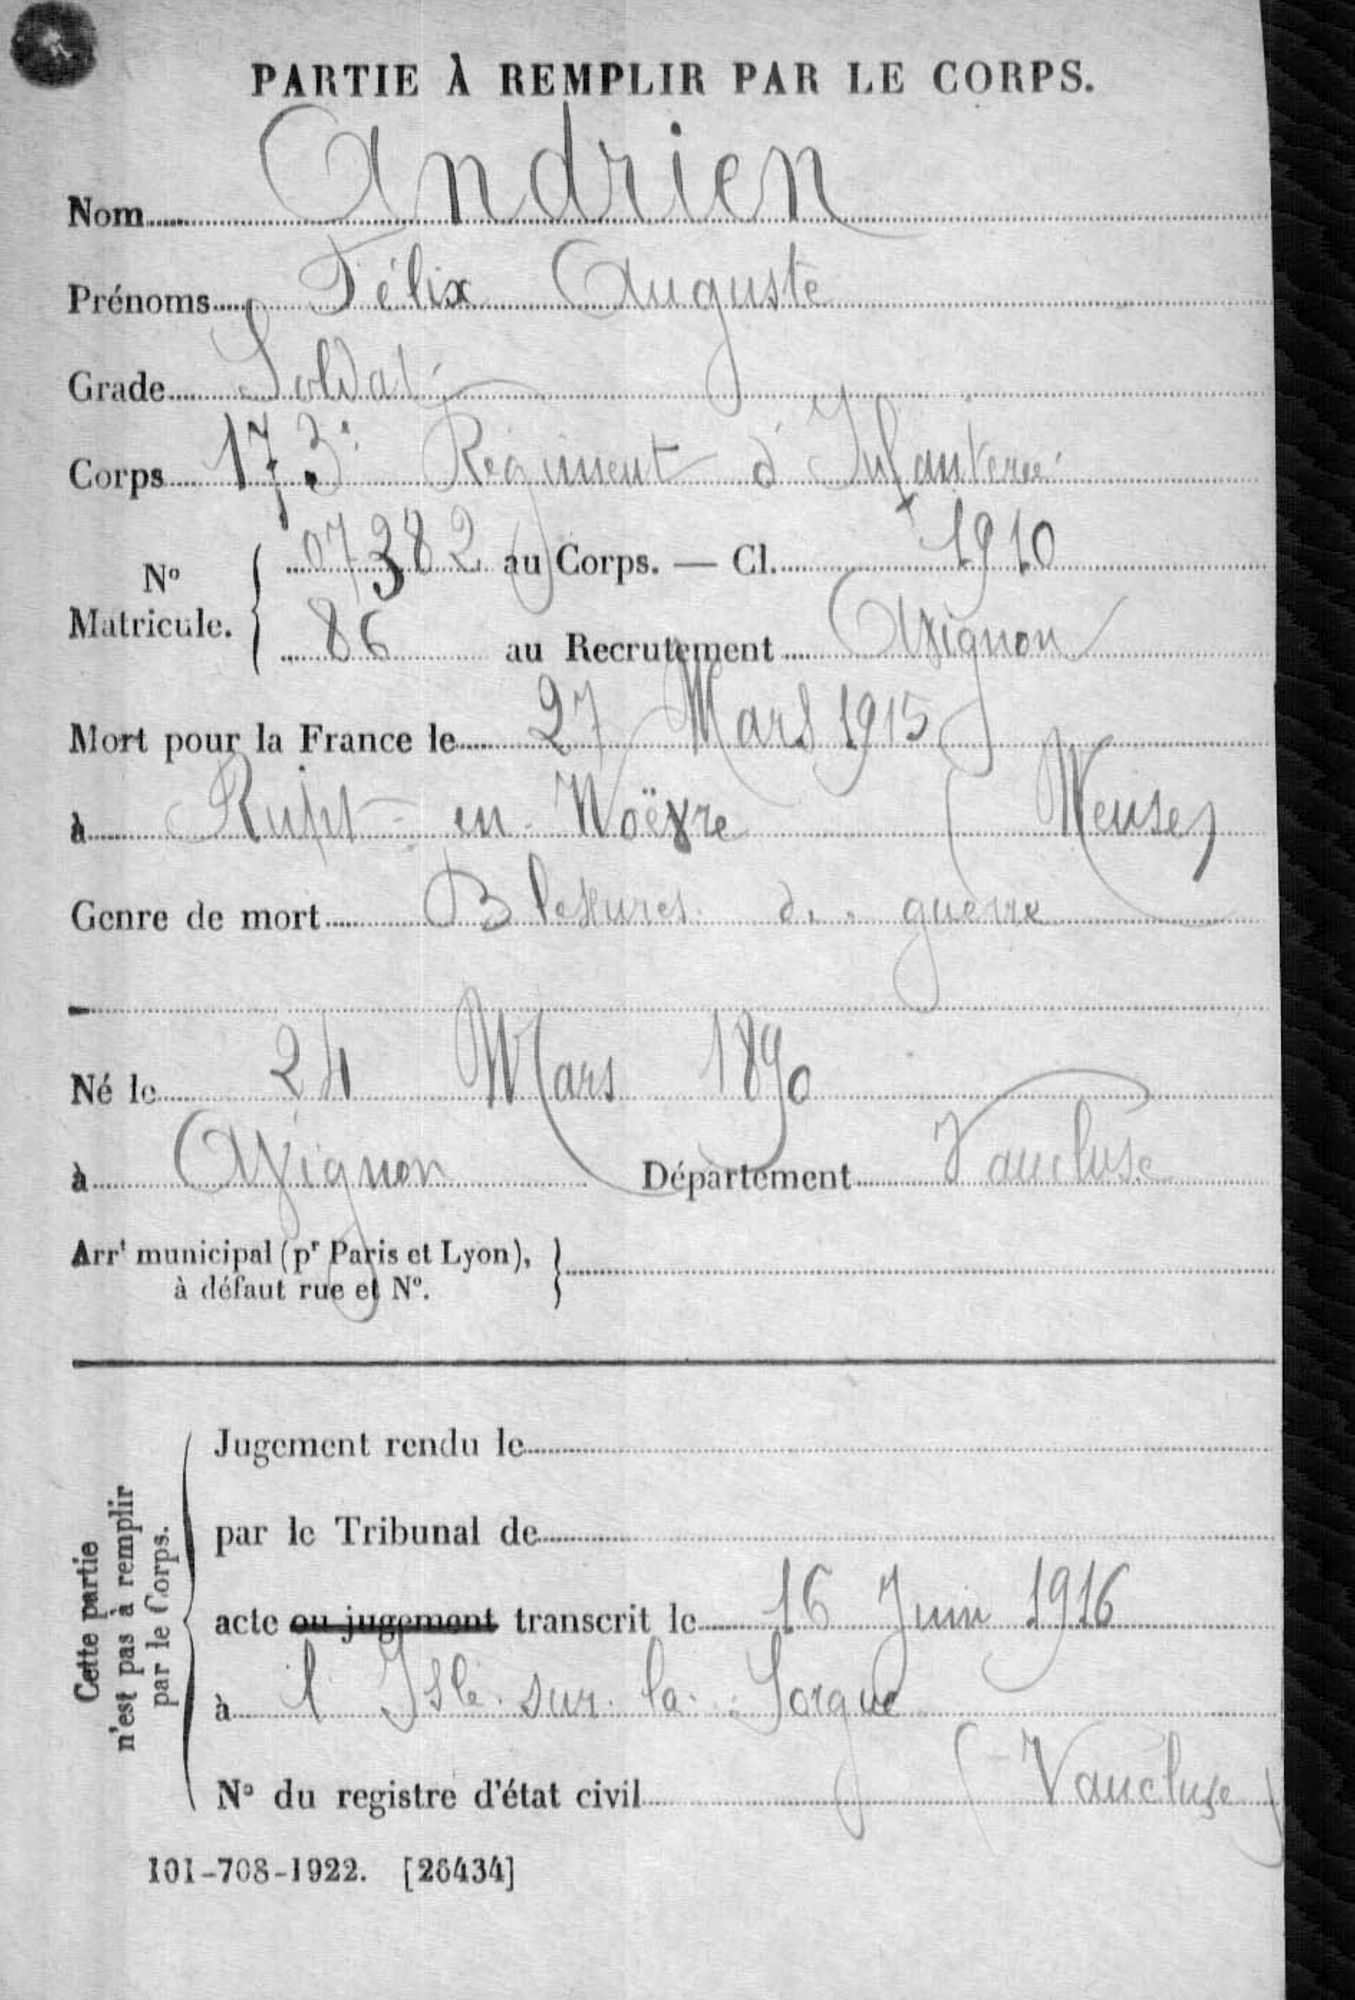 PARTIE À REMPLIR PAR LE CORPS.
Nom Andrien
Prénoms Félix Auguste
Grade Soldat
Corps 173e Régiment d'Infanterie
No Matricule. 07382 au Corps. — Cl. 1910
86 au Recrutement Avignon
Mort pour la France le 27 Mars 1915
à Rupt-en-Woëvre (Meuse)
Genre de mort Blessures de guerre
Né le 24 Mars 1890
à Avignon Département Vaucluse
Arrt municipal (pr Paris et Lyon),
à défaut rue et No.
Cette partie
n'est pas à remplir
par le Corps.
Jugement rendu le
par le Tribunal de
acte ou jugement transcrit le 16 Juin 1916
à l'Isle sur la Sorgue
(Vaucluse)
No du registre d'état civil
101-708-1922. [26434]